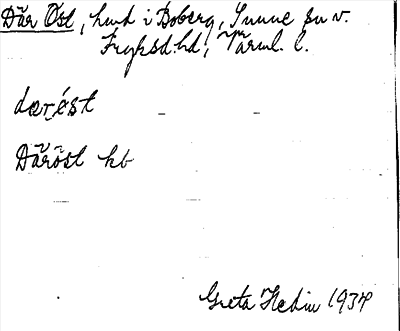 Där Öst, hmd i Boberg, Sunne sn v.
Fryksd. hd, Värml. l.
dærǿst
Däröst kb
Greta Hedin 1934